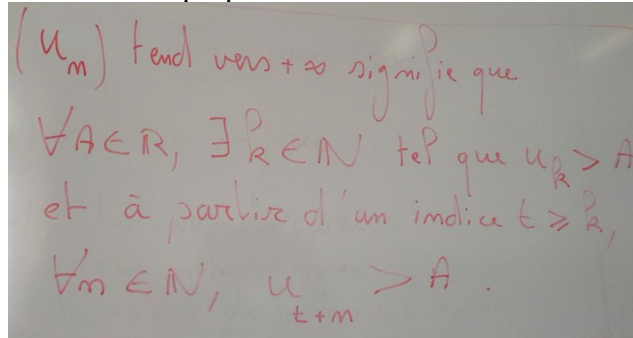 (u_n) tend vers +∞ signifie que
∀A∈R, ∃k∈N tel que u_k > A
et à partir d'un indice t ≥ k,
∀n∈N, u_{t+n} > A.